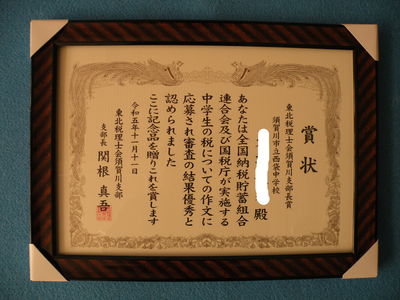 賞状
東北税理士会須賀川支部長賞
須賀川市立西袋中学校
殿
あなたは全国納税貯蓄組合
連合会及び国税庁が実施する
中学生の税についての作文に
応募され審査の結果優秀と
認められました
ここに記念品を贈りこれを賞します
令和五年十一月十一日
東北税理士会須賀川支部
支部長 関根真吾